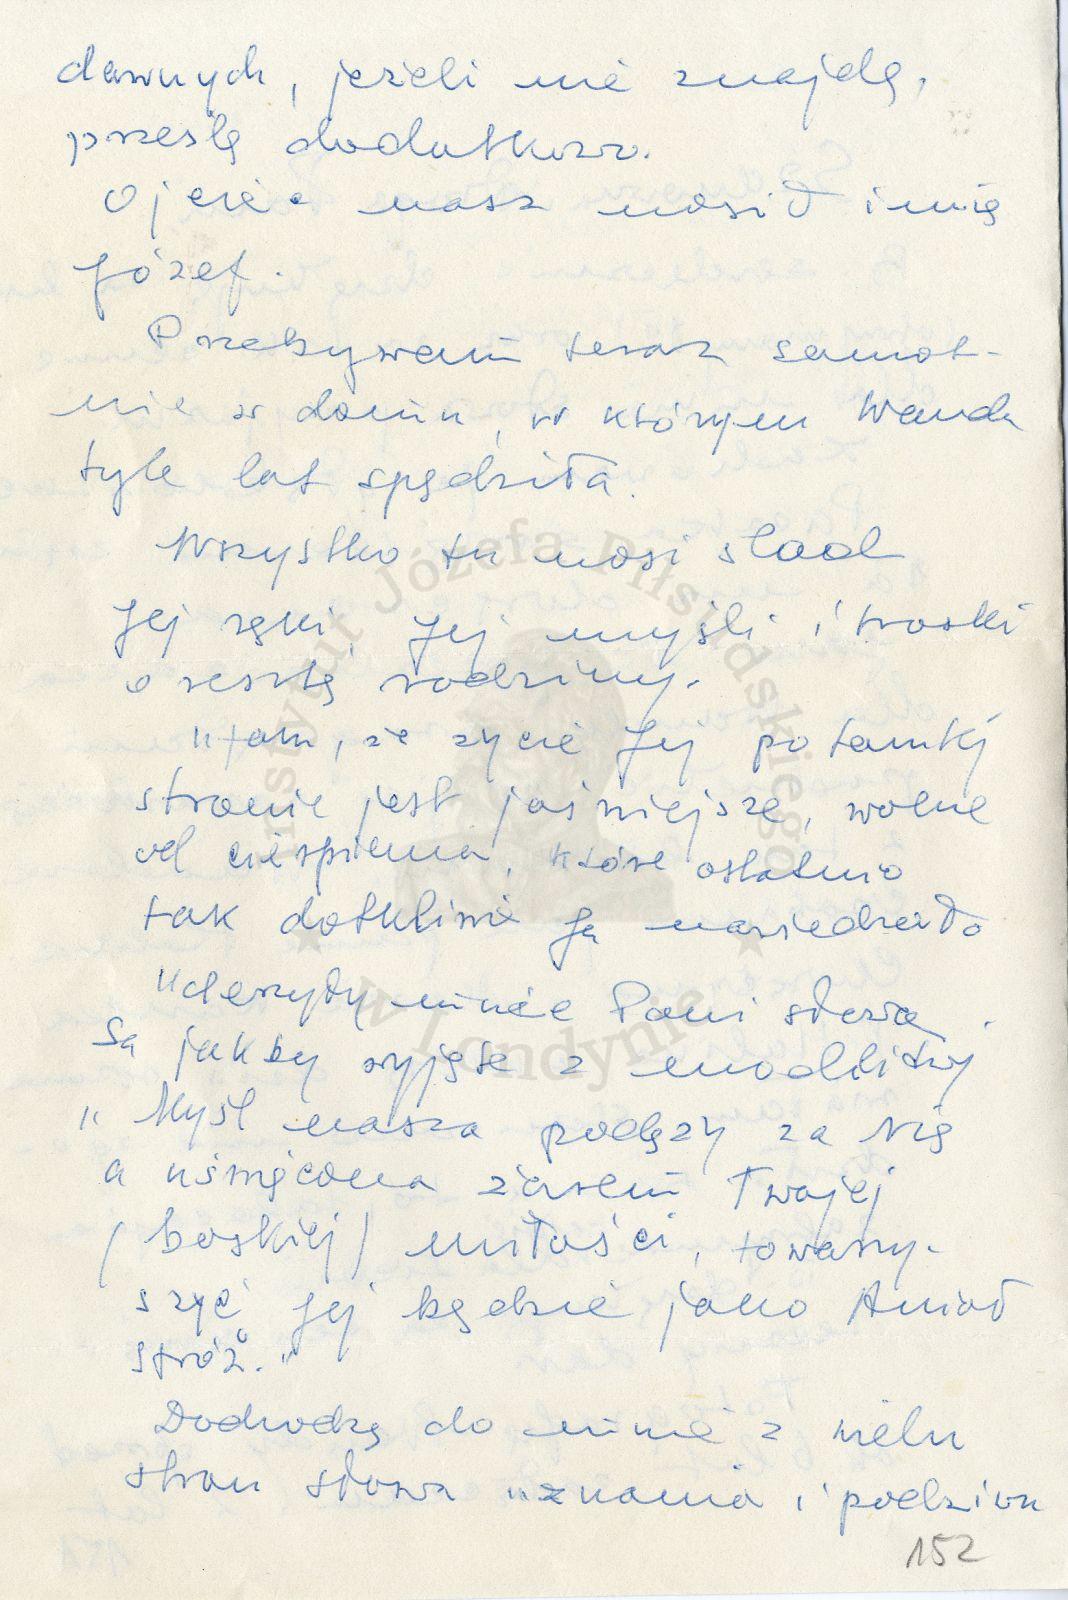 dawnych, jeżeli nie znajdę,
prześlę dodatkowo.
Ojciec nasz nosił imię
Józef.
Przebywam teraz samot-
nie w domu, w którym Wanda
tyle lat spędziła.
Wszystko tu nosi ślad
Jej ręki, Jej myśli i troski
o resztę rodziny.
Ufam, że życie Jej po tamtej
stronie jest jaśniejsze, wolne
od cierpienia, które ostatnio
tak dotkliwie Ją nawiedzało
Uderzyły mnie Pani słowa.
Są jakby wyjęte z modlitwy
"Myśl nasza podąży za Nią
a uświęcona żarem Twojej
/boskiej/ miłości, towarzy-
szyć Jej będzie jako Anioł
stróż."
Dochodzą do mnie z wielu
stron słowa uznania i podziwu
152
Instytut Józefa Piłsudskiego
w Londynie